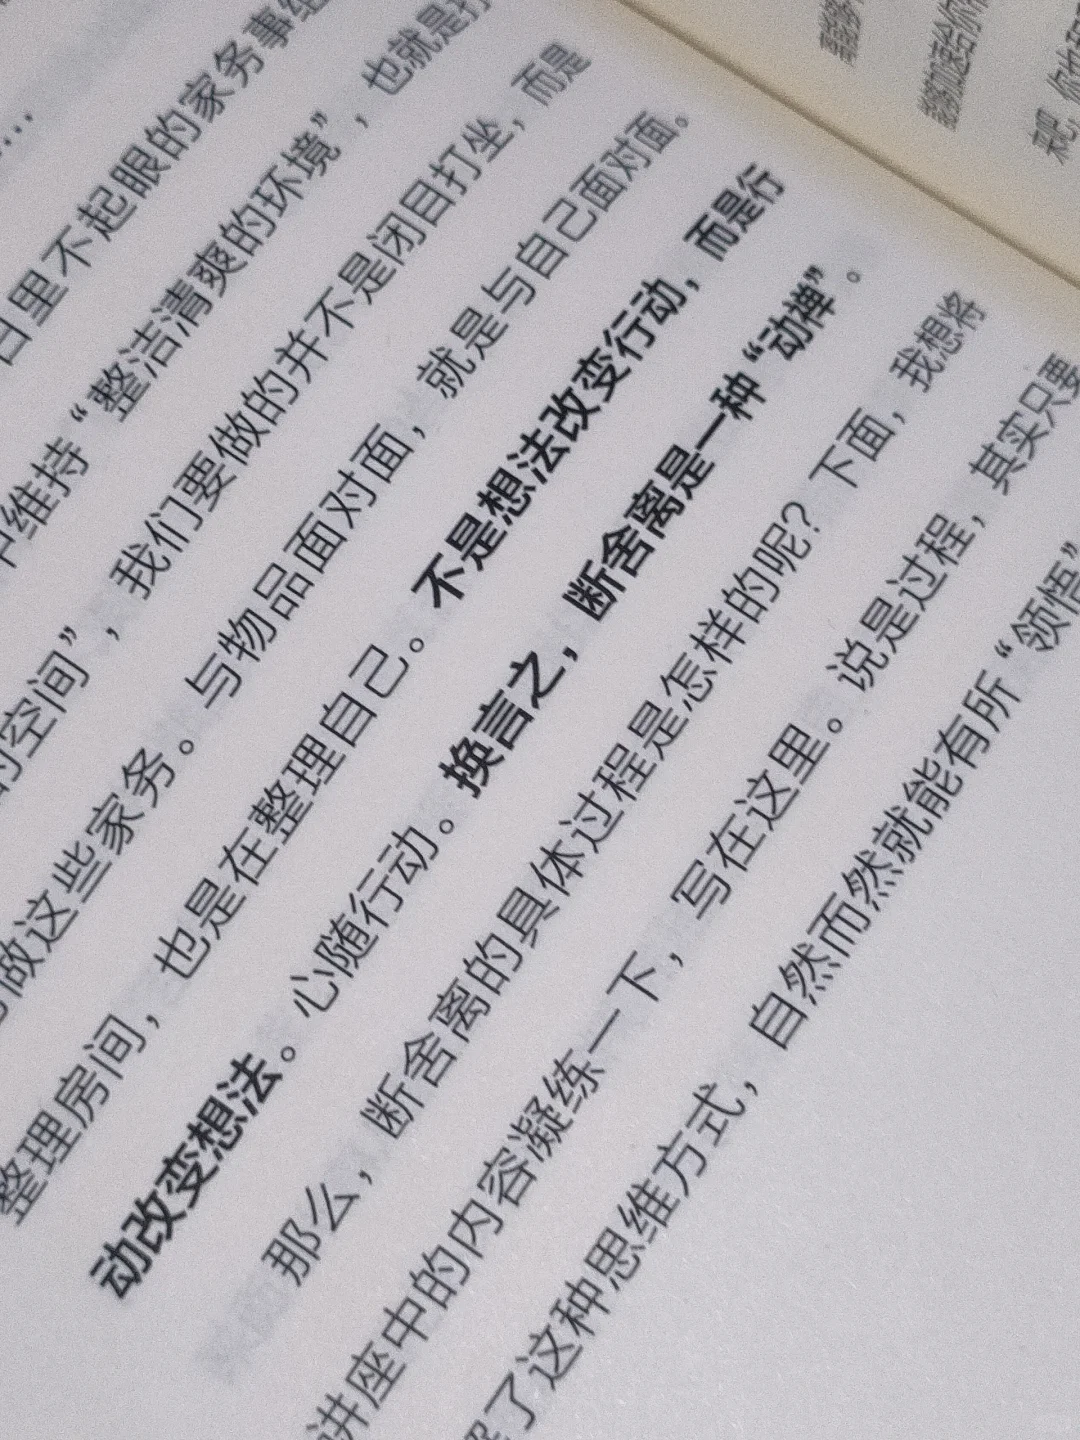 日里不起眼的家务事组
中维持“整洁清爽的环境”，也就是打
的空间”，我们要做的并不是闭目打坐，而是
做这些家务。与物品面对面，就是与自己面对面。
整理房间，也是在整理自己。不是想法改变行动，而是行
动改变想法。心随行动。换言之，断舍离是一种“动禅”。
那么，断舍离的具体过程是怎样的呢？下面，我想将
讲座中的内容凝练一下，写在这里。说是过程，其实只要
了这种思维方式，自然而然就能有所“领悟”